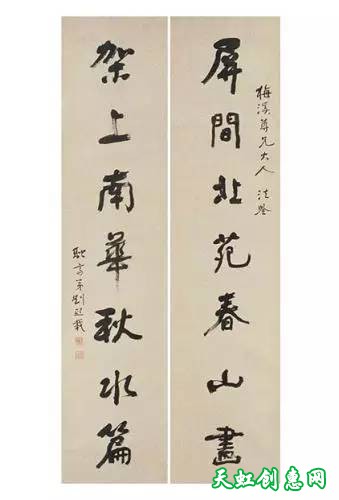 梅溪尊兄大人 法鑒
屏間北苑春山畫
架上南華秋水篇
弟劉
天虹创惠网